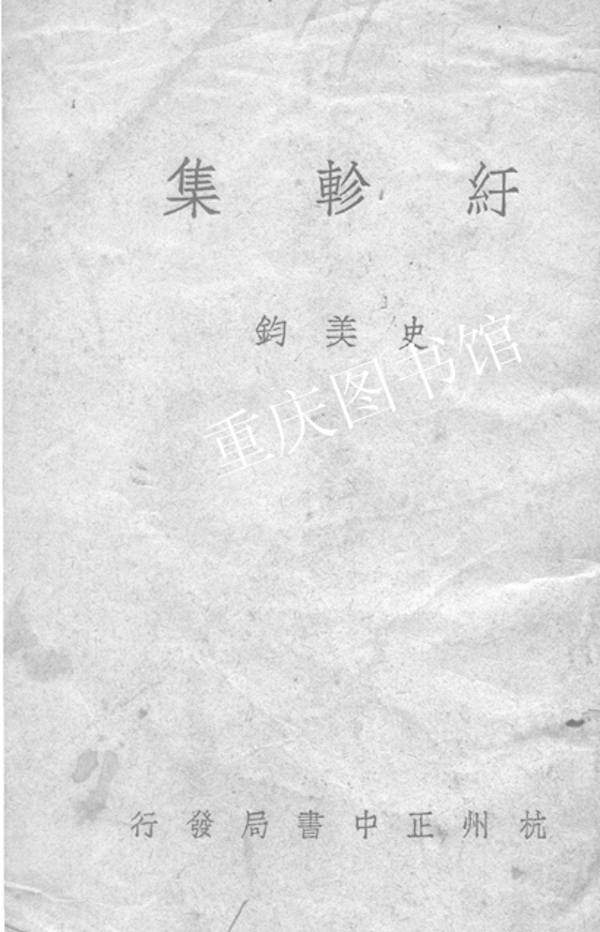 紆軫集
史美鈞
重庆图书馆
杭州正中書局發行